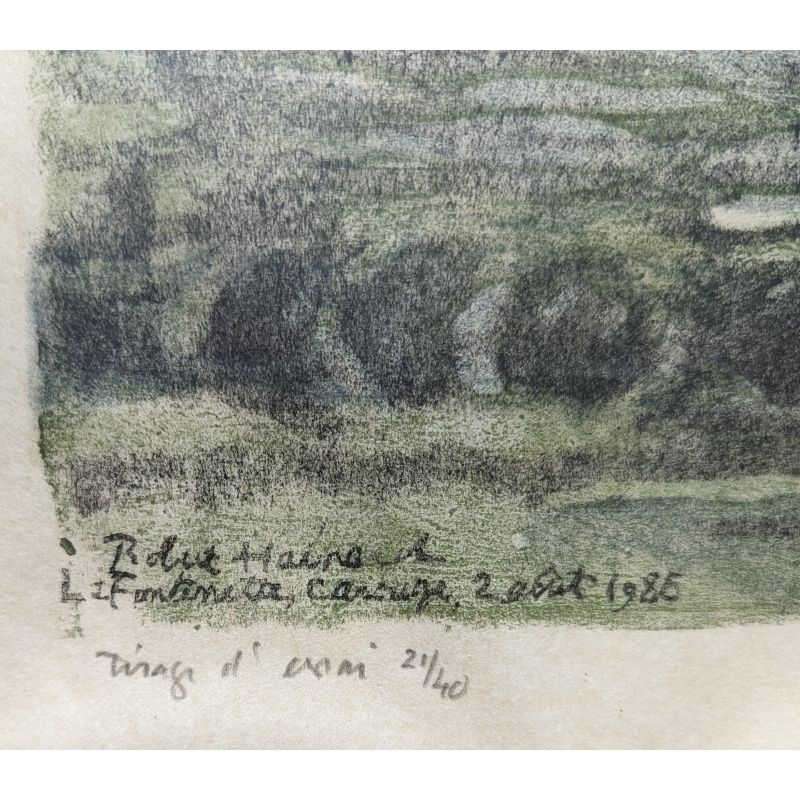 Robert Hainard
La Fontenette, Carouge, 2 août 1985
Tirage d'essai 21/40